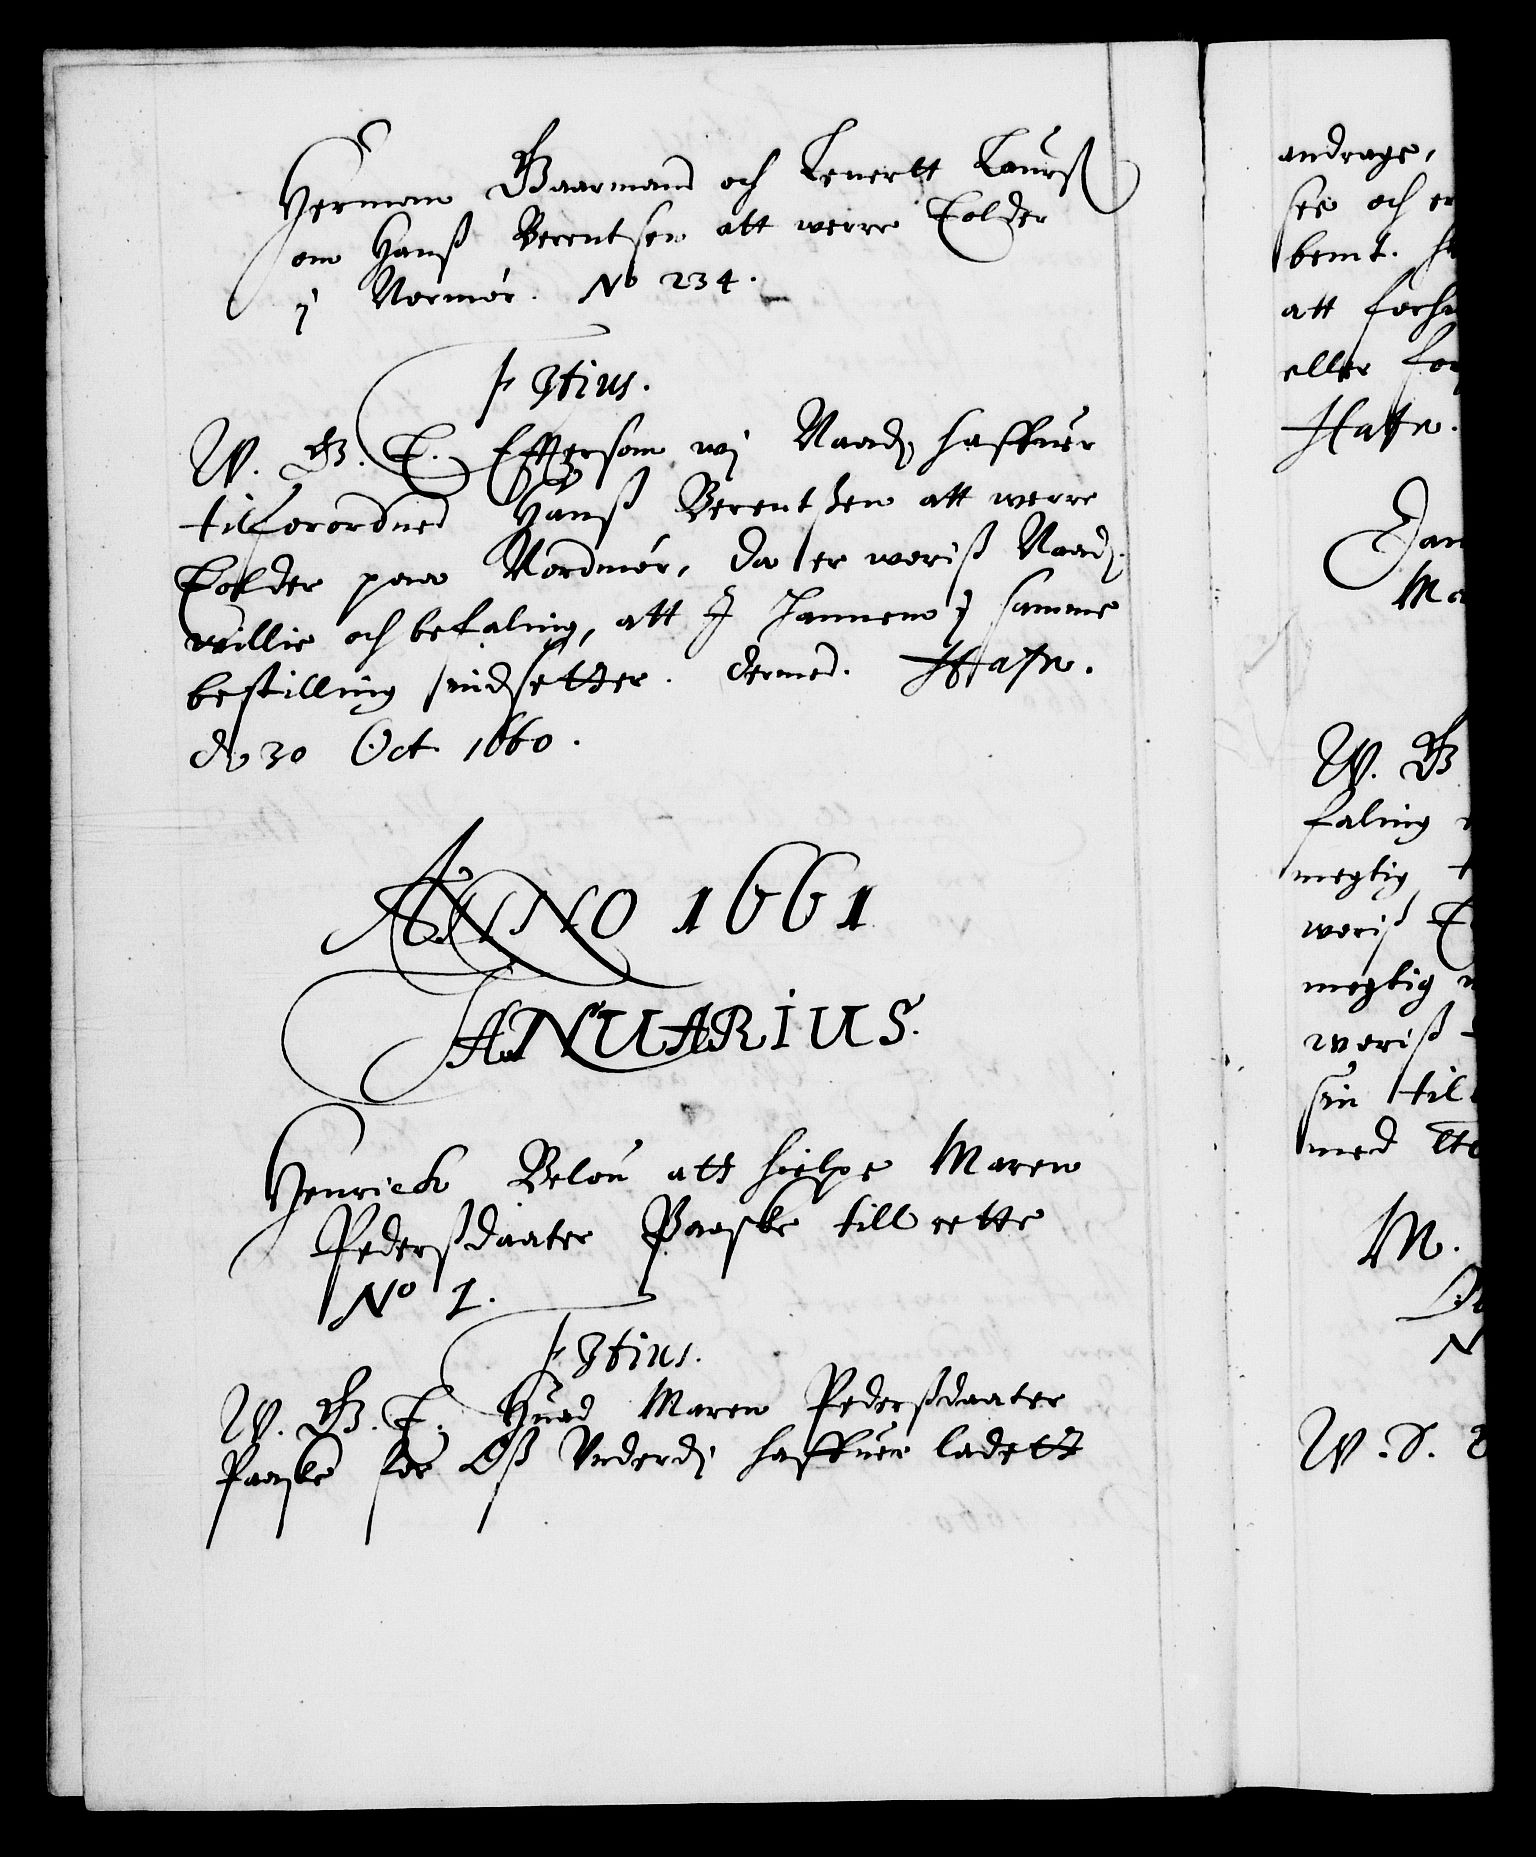 Herman Gaarmand och Lenertt Laurß
om Hanß Berentsen att werre Tolder
j Normör. No 234.
F 3tius.
W. G. T. Efftersom wj Naadj. haffuer
tilforordned Hanß Berentsen att werre
Tolder paa Nordmör, da er woriß Naadj.
willie och befaling, att I hannem j samme
bestilling indsetter. dermed. Hafn.
d. 30 Oct 1660.
ANNO 1661
JANUARIUS.
Henrick Belou att hielpe Maren
Pederßdaater Paaske till rette
No 1.
F 3tius.
W. G. T. Huad Maren Pederßdaater
Paaske for Oß Vnderdj haffuer ladett
andrage,
see och er
bemt.
att forh
eller
Hafn.
Jan
Ma
W. G
faling
megtig
woriß
megtig
woriß
sin til
med
M.
N
W. S.